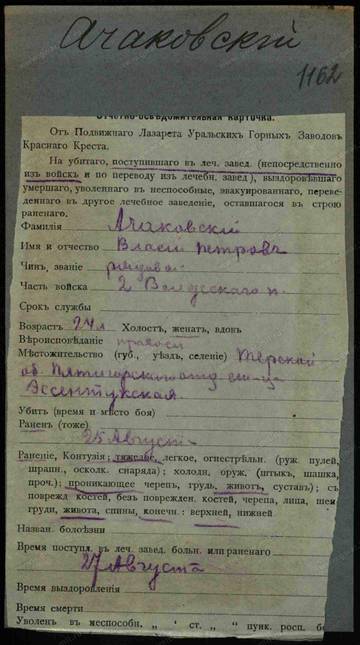 Ачаковскій
1162
Отчетно-освѣдомительная карточка.
Отъ Подвижнаго Лазарета Уральскихъ Горныхъ Заводовъ
Краснаго Креста.
На убитаго, поступившаго въ леч. завед. (непосредственно
изъ войскъ и по переводу изъ лечебн. завед.), выздоровѣвшаго
умершаго, уволеннаго въ неспособные, эвакуированнаго, переве-
деннаго въ другое лечебное заведеніе, оставшагося въ строю
раненаго.
Фамилія Ачаковскій
Имя и отчество Власій Петровъ
Чинъ, званіе рядовой
Часть войска 2
Срокъ службы
Возрастъ 24 л. Холостъ, женатъ, вдовъ
Вѣроисповѣданіе правосл
Мѣстожительство (губ., уѣздъ, селеніе) Терской
об. Пятигорскаго отд ст-ца
Эссентукская
Убитъ (время и мѣсто боя)
Раненъ (тоже)
25 Август
Раненіе, Контузія: тяжелое, легкое, огнестрѣльн. (руж. пулей,
шрапн., осколк. снаряда); холодн. оруж. (штыкъ, шашка,
проч.); проникающее черепъ, грудь, животъ, суставъ); съ
поврежд костей, безъ поврежден. костей, черепа, лица, шеи
груди, живота, спины, конечн.: верхней, нижней
Назван. болѣзни
Время поступл. въ леч. завед. больн. или раненаго
27 Августа
Время выздоровленія
Время смерти
Уволенъ въ неспособн. „ “ ст. „ “ пунк. росп. бо